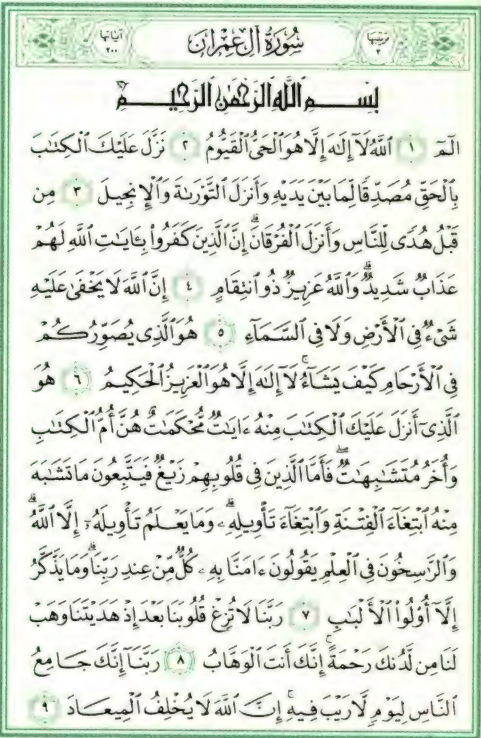 ترتيبها ٣
سُورَةُ آلِ عِمْرَانَ
آياتها ٢٠٠
بِسْمِ اللَّهِ الرَّحْمَٰنِ الرَّحِيمِ
الٓمٓ ١ ٱللَّهُ لَآ إِلَٰهَ إِلَّا هُوَ ٱلْحَىُّ ٱلْقَيُّومُ ٢ نَزَّلَ عَلَيْكَ ٱلْكِتَٰبَ
بِٱلْحَقِّ مُصَدِّقًا لِّمَا بَيْنَ يَدَيْهِ وَأَنزَلَ ٱلتَّوْرَىٰةَ وَٱلْإِنجِيلَ ٣ مِن
قَبْلُ هُدًى لِّلنَّاسِ وَأَنزَلَ ٱلْفُرْقَانَ ۗ إِنَّ ٱلَّذِينَ كَفَرُوا۟ بِـَٔايَٰتِ ٱللَّهِ لَهُمْ
عَذَابٌ شَدِيدٌ ۗ وَٱللَّهُ عَزِيزٌ ذُو ٱنتِقَامٍ ٤ إِنَّ ٱللَّهَ لَا يَخْفَىٰ عَلَيْهِ
شَىْءٌ فِى ٱلْأَرْضِ وَلَا فِى ٱلسَّمَآءِ ٥ هُوَ ٱلَّذِى يُصَوِّرُكُمْ
فِى ٱلْأَرْحَامِ كَيْفَ يَشَآءُ ۚ لَآ إِلَٰهَ إِلَّا هُوَ ٱلْعَزِيزُ ٱلْحَكِيمُ ٦ هُوَ
ٱلَّذِىٓ أَنزَلَ عَلَيْكَ ٱلْكِتَٰبَ مِنْهُ ءَايَٰتٌ مُّحْكَمَٰتٌ هُنَّ أُمُّ ٱلْكِتَٰبِ
وَأُخَرُ مُتَشَٰبِهَٰتٌ ۖ فَأَمَّا ٱلَّذِينَ فِى قُلُوبِهِمْ زَيْغٌ فَيَتَّبِعُونَ مَا تَشَٰبَهَ
مِنْهُ ٱبْتِغَآءَ ٱلْفِتْنَةِ وَٱبْتِغَآءَ تَأْوِيلِهِۦ ۗ وَمَا يَعْلَمُ تَأْوِيلَهُۥٓ إِلَّا ٱللَّهُ ۗ
وَٱلرَّٰسِخُونَ فِى ٱلْعِلْمِ يَقُولُونَ ءَامَنَّا بِهِۦ كُلٌّ مِّنْ عِندِ رَبِّنَا ۗ وَمَا يَذَّكَّرُ
إِلَّآ أُو۟لُوا۟ ٱلْأَلْبَٰبِ ٧ رَبَّنَا لَا تُزِغْ قُلُوبَنَا بَعْدَ إِذْ هَدَيْتَنَا وَهَبْ
لَنَا مِن لَّدُنكَ رَحْمَةً ۚ إِنَّكَ أَنتَ ٱلْوَهَّابُ ٨ رَبَّنَآ إِنَّكَ جَامِعُ
ٱلنَّاسِ لِيَوْمٍ لَّا رَيْبَ فِيهِ ۚ إِنَّ ٱللَّهَ لَا يُخْلِفُ ٱلْمِيعَادَ ٩